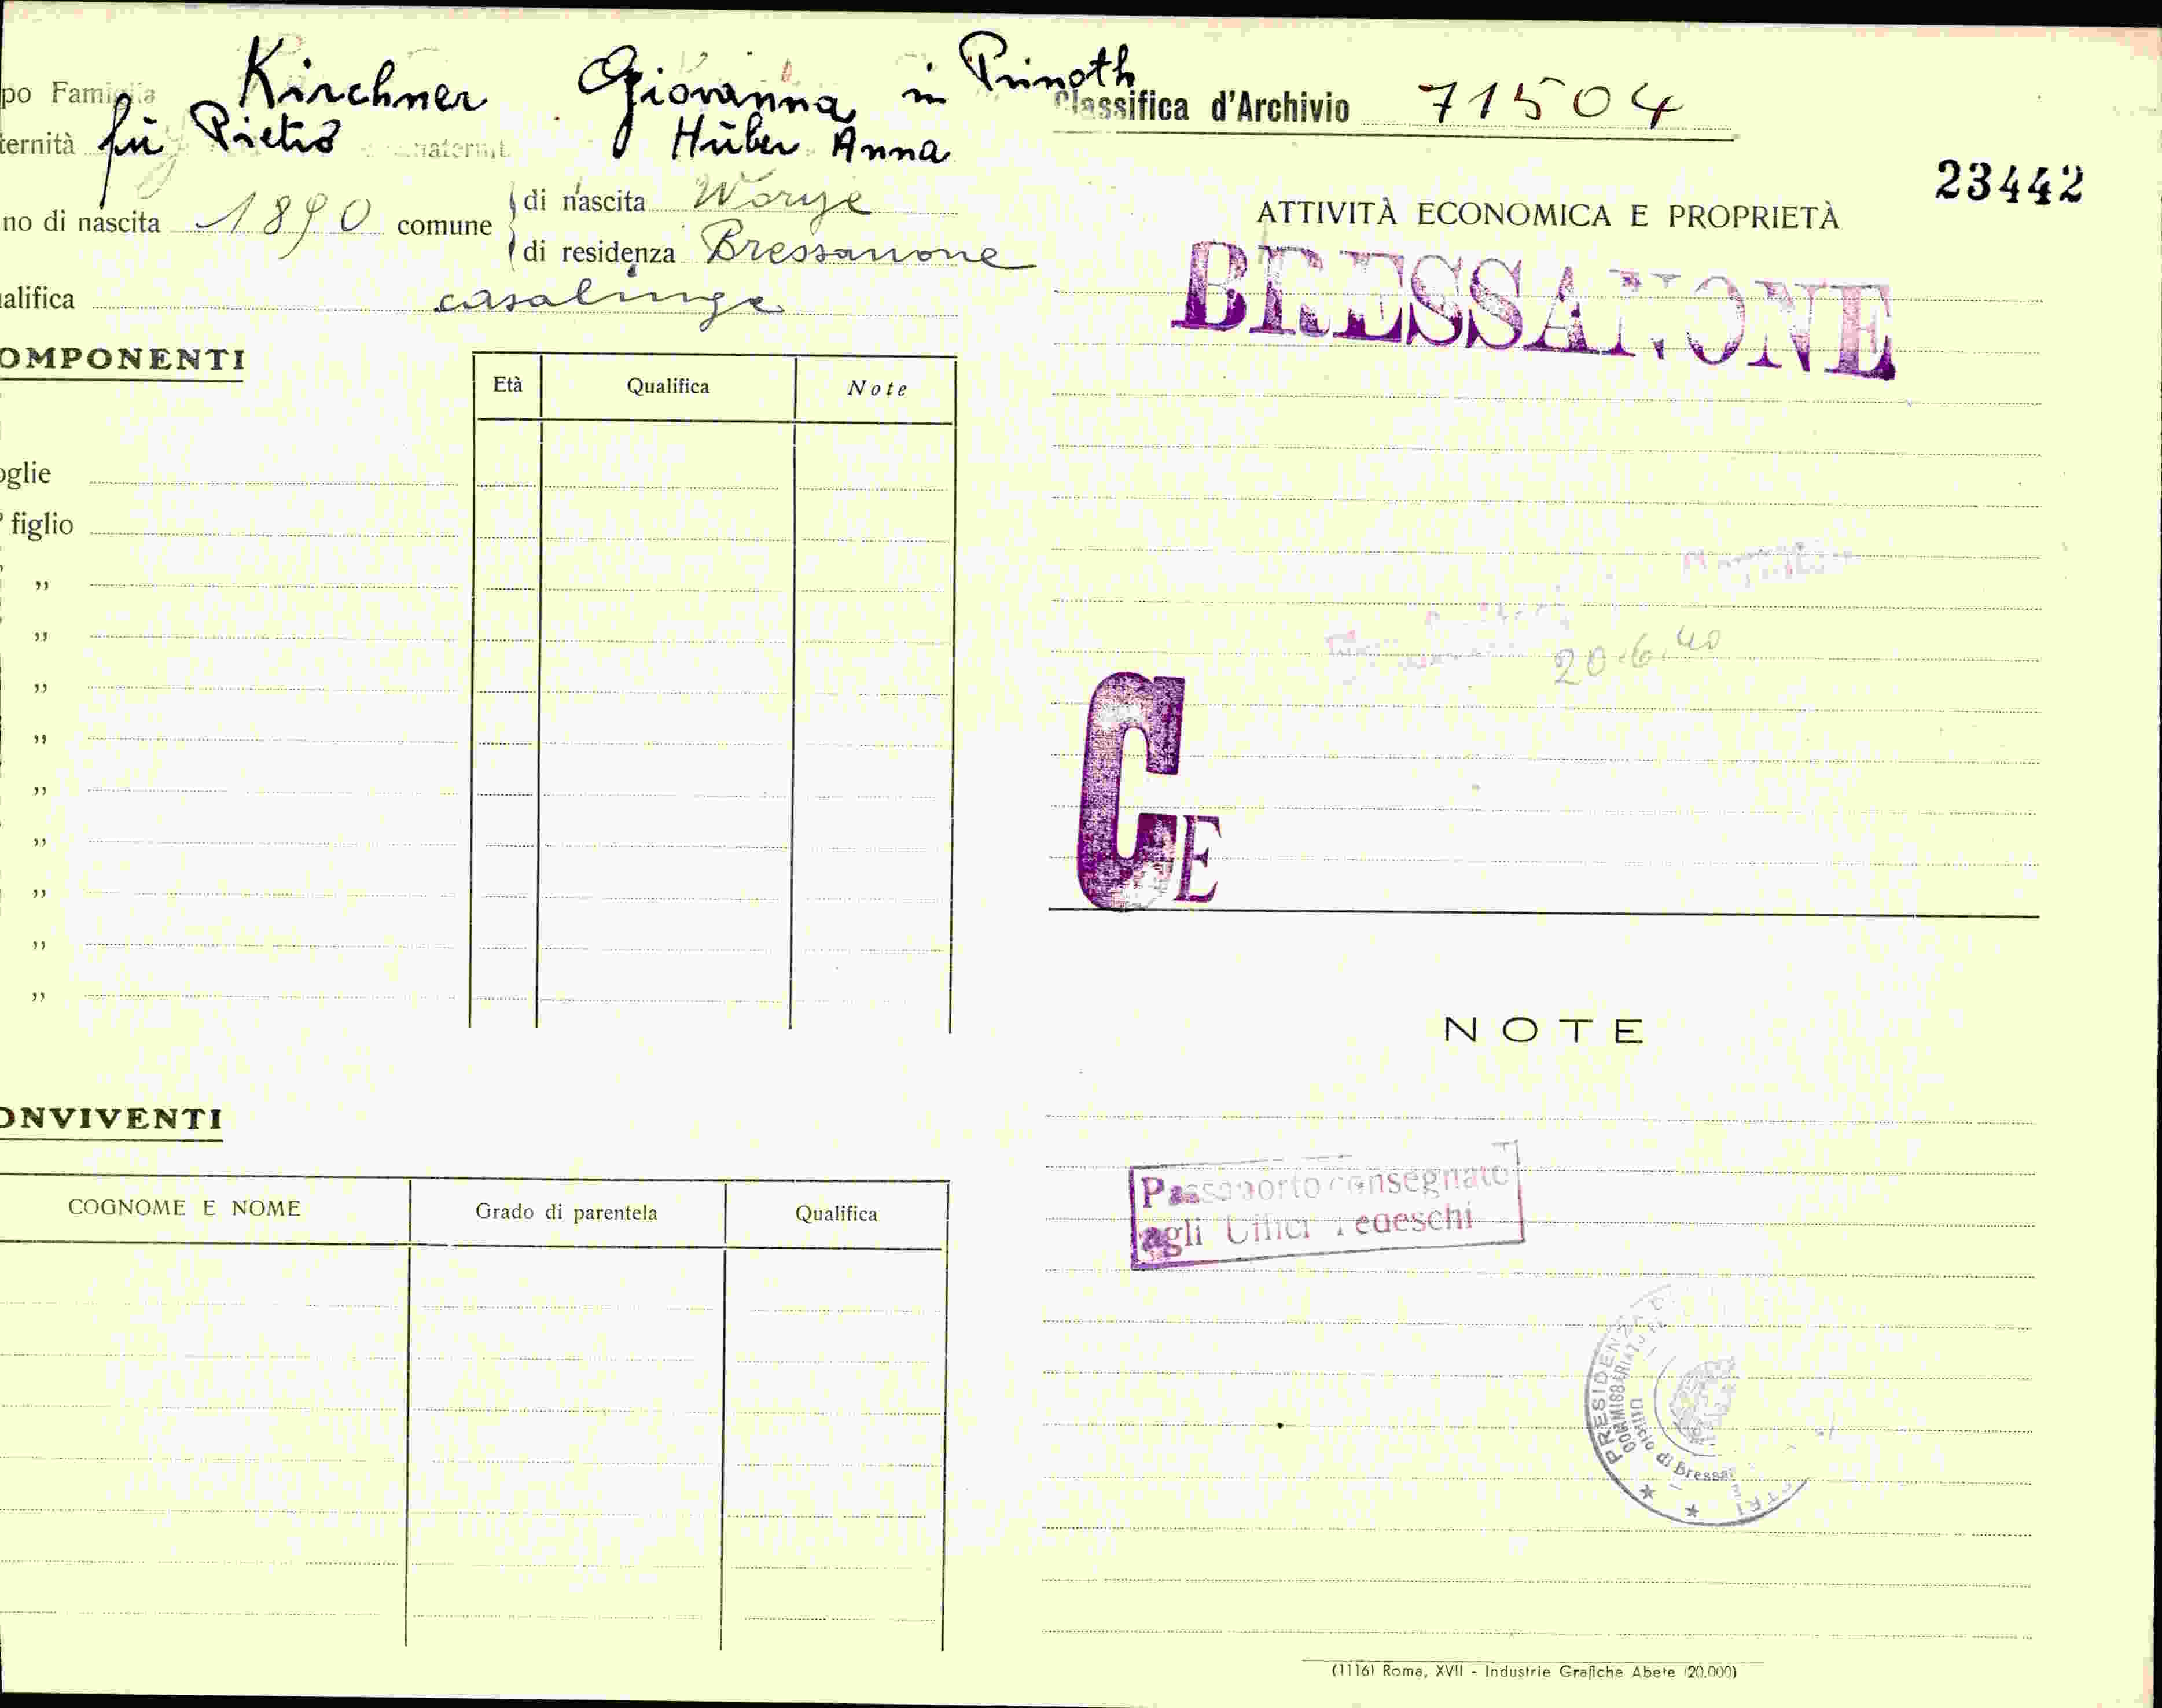 po Famiglia Kirchner Giovanna in Prinoth
ternità fu Pietro maternit. Huber Anna
no di nascita 1890 comune di nascita
di residenza Bressanone
alifica casalinga
OMPONENTI
Età Qualifica Note
oglie
figlio
”
”
”
”
”
”
”
”
”
ONVIVENTI
COGNOME E NOME Grado di parentela Qualifica
Classifica d'Archivio 71504
23442
ATTIVITÀ ECONOMICA E PROPRIETÀ
BRESSANONE
20.6.40
C E
NOTE
Passaporto consegnato
agli Uffici Tedeschi
PRESIDENZA
COMMISSARIATO
Ufficio di Bressa
(1116) Roma, XVII - Industrie Grafiche Abete (20.000)